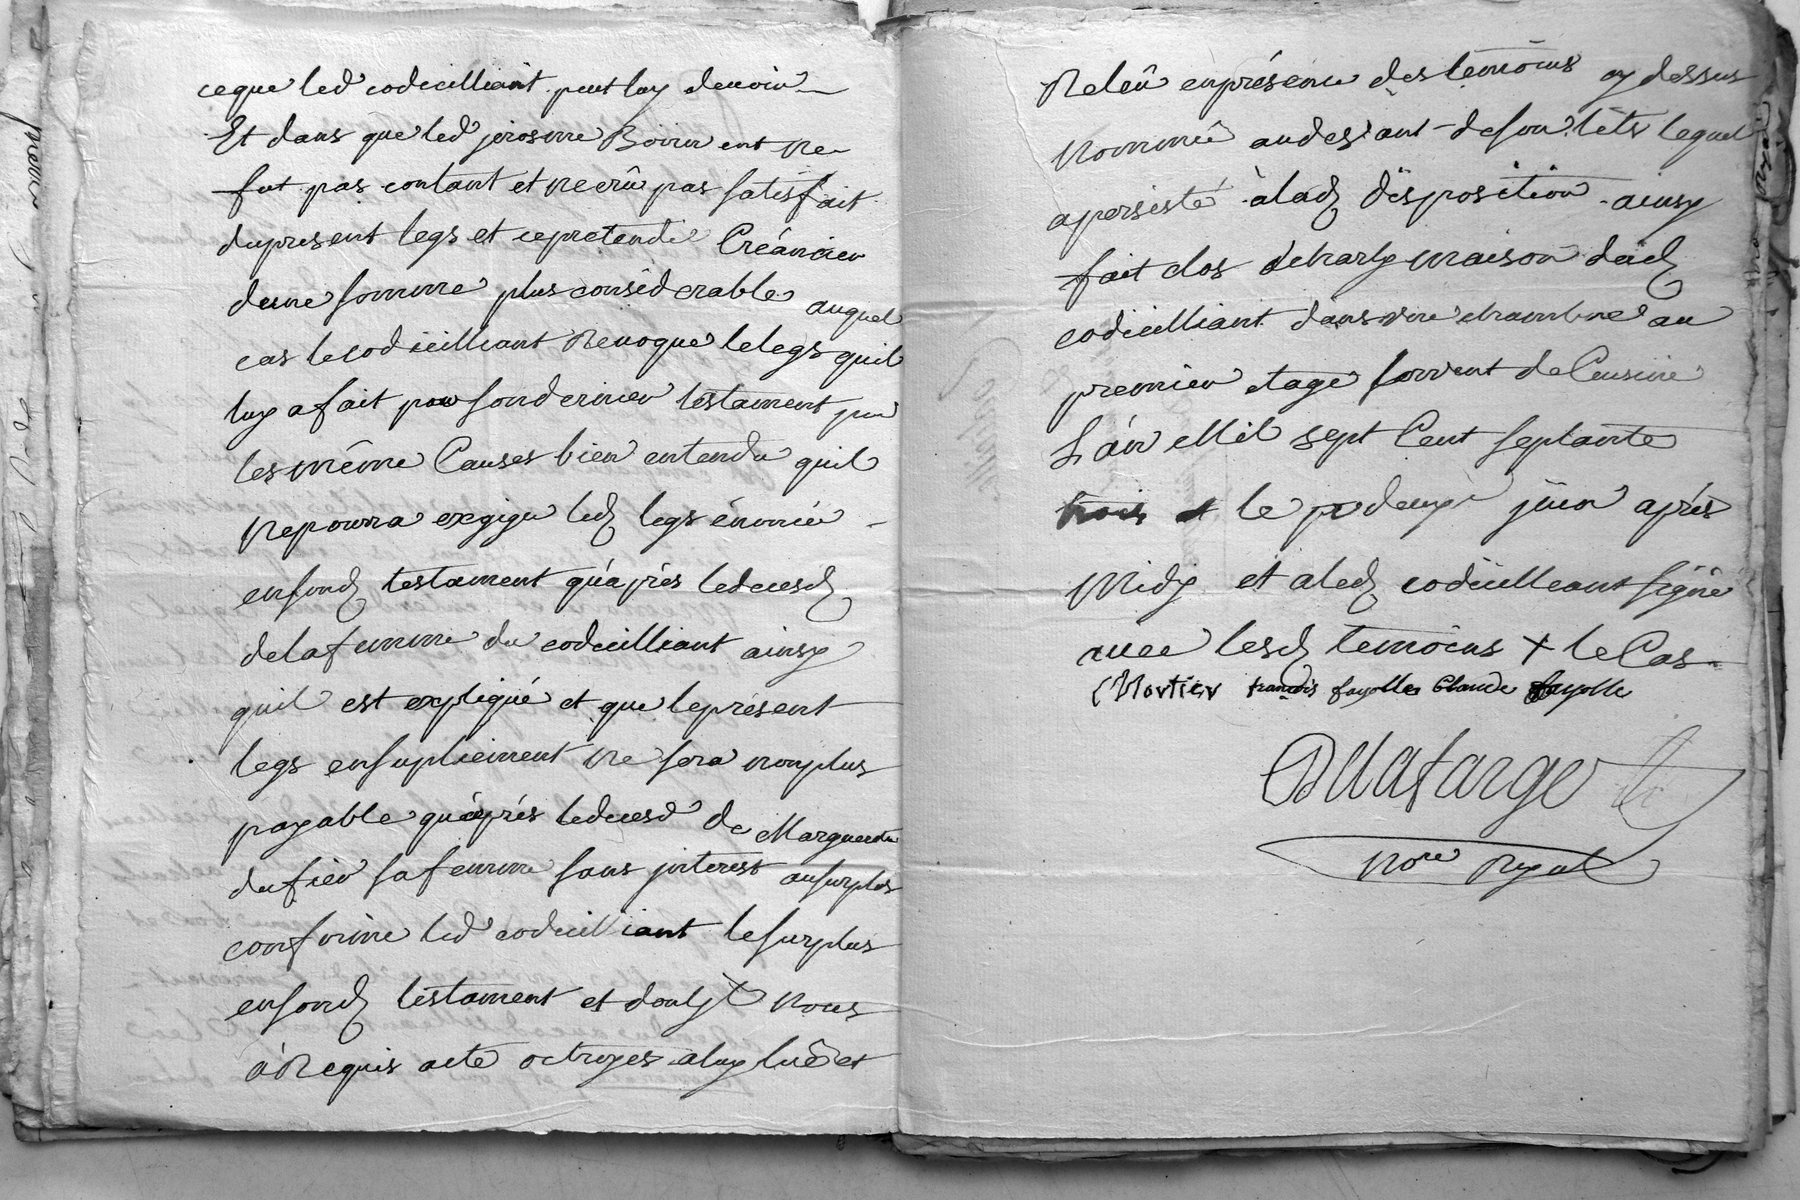 ceque led codicilliant peut luy devoir
Et dans que led jerosme en ne
fut pas contant et ne crû pas satisfait
dupresent legs et cepretendi Créancier
dune somme plus considerable auquel
cas le codicilliant Revoque lelegs quil
luy afait pour sondernier testament pour
les même Causes bien entendu quil
nepourra exgiger led legs énoncée
ensond testament quaprés ledecesd
delafemme du codicilliant ainsy
quil est expliqué et que leprésent
legs ensupleiment ne sera nonplus
payable quáprés ledecesd de Marguerite
dufieu safemme sans jnterest ausurplus
confirme led codicilliant lesurplus
ensond testament et dont nous
á Requis acte octroyes aluy lue et
Releû enprésence des temoins cy dessus
nommé audevant de son lêts lequel
apersisté àlad disposition ainsy
fait clos maison dud
codicilliant dans une chambre au
premier etage servent de Cuisine
L'an Mil sept Cent septante
trois et le deuxe juin aprés
Midy et aled codicilleant signé
avec lesd temoins + le Cas
Mortier francois fayolle Claude fayolle
Dellafarge
Nore Royal